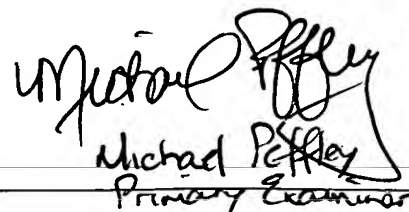 Michael Peffley
Michael Peffley
Primary Examiner